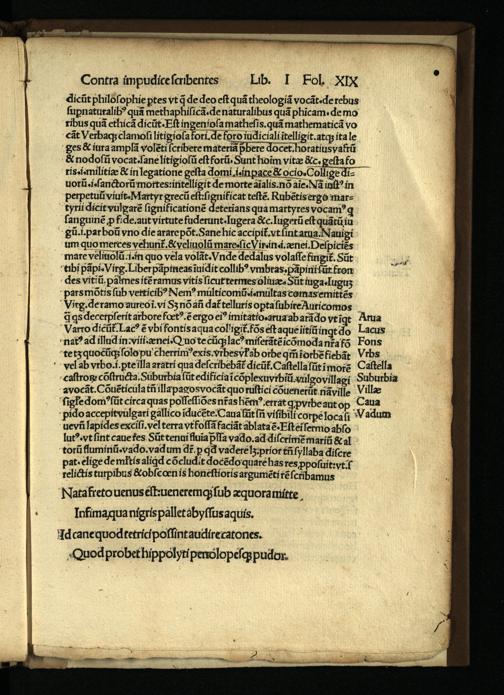 Contra impudice scribentes Lib. I Fol. XIX
dicūt philosophie ptes vt q̄ de deo est quā theologiā vocāt. de rebus
supnaturalibꝰ quā methaphisicā. de naturalibus quā phicam. de mo
ribus quā ethicā dicūt. Est ingeniosa mathesis. quā mathematicā vo
cāt Verbaq; clamosi litigiosa fori. de foro iudiciali ītelligit. atq; ita le
ges & iura amplā volēti scribere materiā p̄bere docet. horatius vafrū
& nodosū vocat. sane litigiosū est forū. Sunt hoim vitæ &c. gesta fo
ris. i. militiæ & in legatione gesta domi. i. in pace & ocio. Collige di-
uorū. i. sanctorū mortes: intelligit de morte aīalis. nō aīe. Nā iustꝰ in
perpetuū viuit. Martyr grecū est: significat testē. Rubētis ergo mar-
tyrii dicit vulgarē significationē detestans qua martyres vocamꝰ q̄
sanguinē. p fide. aut virtute fuderunt. Iugera &c. Iugerū est quātū iu
gū. i. par boū vno die arare pōt. Sane hic accipiť. vt sunt arua. Nauigi
um quo merces vehunť. & veliuolū mare. sic Vir. in. i. ænei. Despiciēs
mare veliuolū. i. in quo vela volāt. Vnde dedalus volasse fingiť. Sūt
tibi pāpi. Virg. Liber pāpineas iuidit collibꝰ vmbras. pāpini sūt fron
des vitiū. palmes itē ramus vitis sicut termes oliuæ. Sūt iuga. Iugūꝫ
pars mōtis sub verticibꝰ Nemꝰ multicomū. i. multas comas emittēs
Virg. de ramo aureo. vi Sꝫ nō añ daꝉ telluris opta subire Auricomos
q̄ qs decerpserit arbore fœtꝰ. ē ergo eiꝰ imitatio. arua ab arādo vt iqt
Varro dicūť. Lacꝰ ē vbi fontis aqua colligiť. fōs est aque iitiū inqt do
natꝰ ad illud in. viii. ænei. Quo te cūq; lacꝰ miserātē icōmoda nr̄a fō
te tꝫ quocūq; solo pulcherrimꝰ exis. vrbes vl' ab orbe qm̄ i orbē fiebāt
vel ab vrbo. i. pte illa aratri qua describebāť dicūť. Castella sūt i morē
castror; cōstructa. Suburbia sūt ędificia i cōplexu vrbiū. vulgo villagi
avocāt. Cōuēticula tn̄ illa pagos vocāt quo rustici cōuenerūt. nā ville
sigle domꝰ sūt circa quas possessiōes nr̄as hēmꝰ. errat q̄ p vrbe aut op
pido accepit vulgari gallico iducētē. Caua sūt sn̄ visibili corpe loca si
uevn̄ lapides excisi. vel terra vt fossā faciāt ablata ē. Est ei sermo abso
lutꝰ. vt sint caue res. Sūt tenui fluia p̄ssa vado. ad discrimē mariū & al
torū fluminū. vado. vadum dr̄. p qd vadere lꝫ. prior tn̄ syllaba discre
pat. elige de mltis aliqd cōcludit docēdo quare has res. pposuit: vt. s
relictis turpibus & obscœnis honestioris argumēti rē scribamus
Nata freto uenus est: ueneremq; sub æquora mitte
Infima, qua nigris pallet abyssus aquis.
Id cane quod tetrici possint audire catones.
Quod probet hippolyti penolopesq; pudor.
Arua
Lacus
Fons
Vrbs
Castella
Suburbia
Villæ
Caua
Vadum